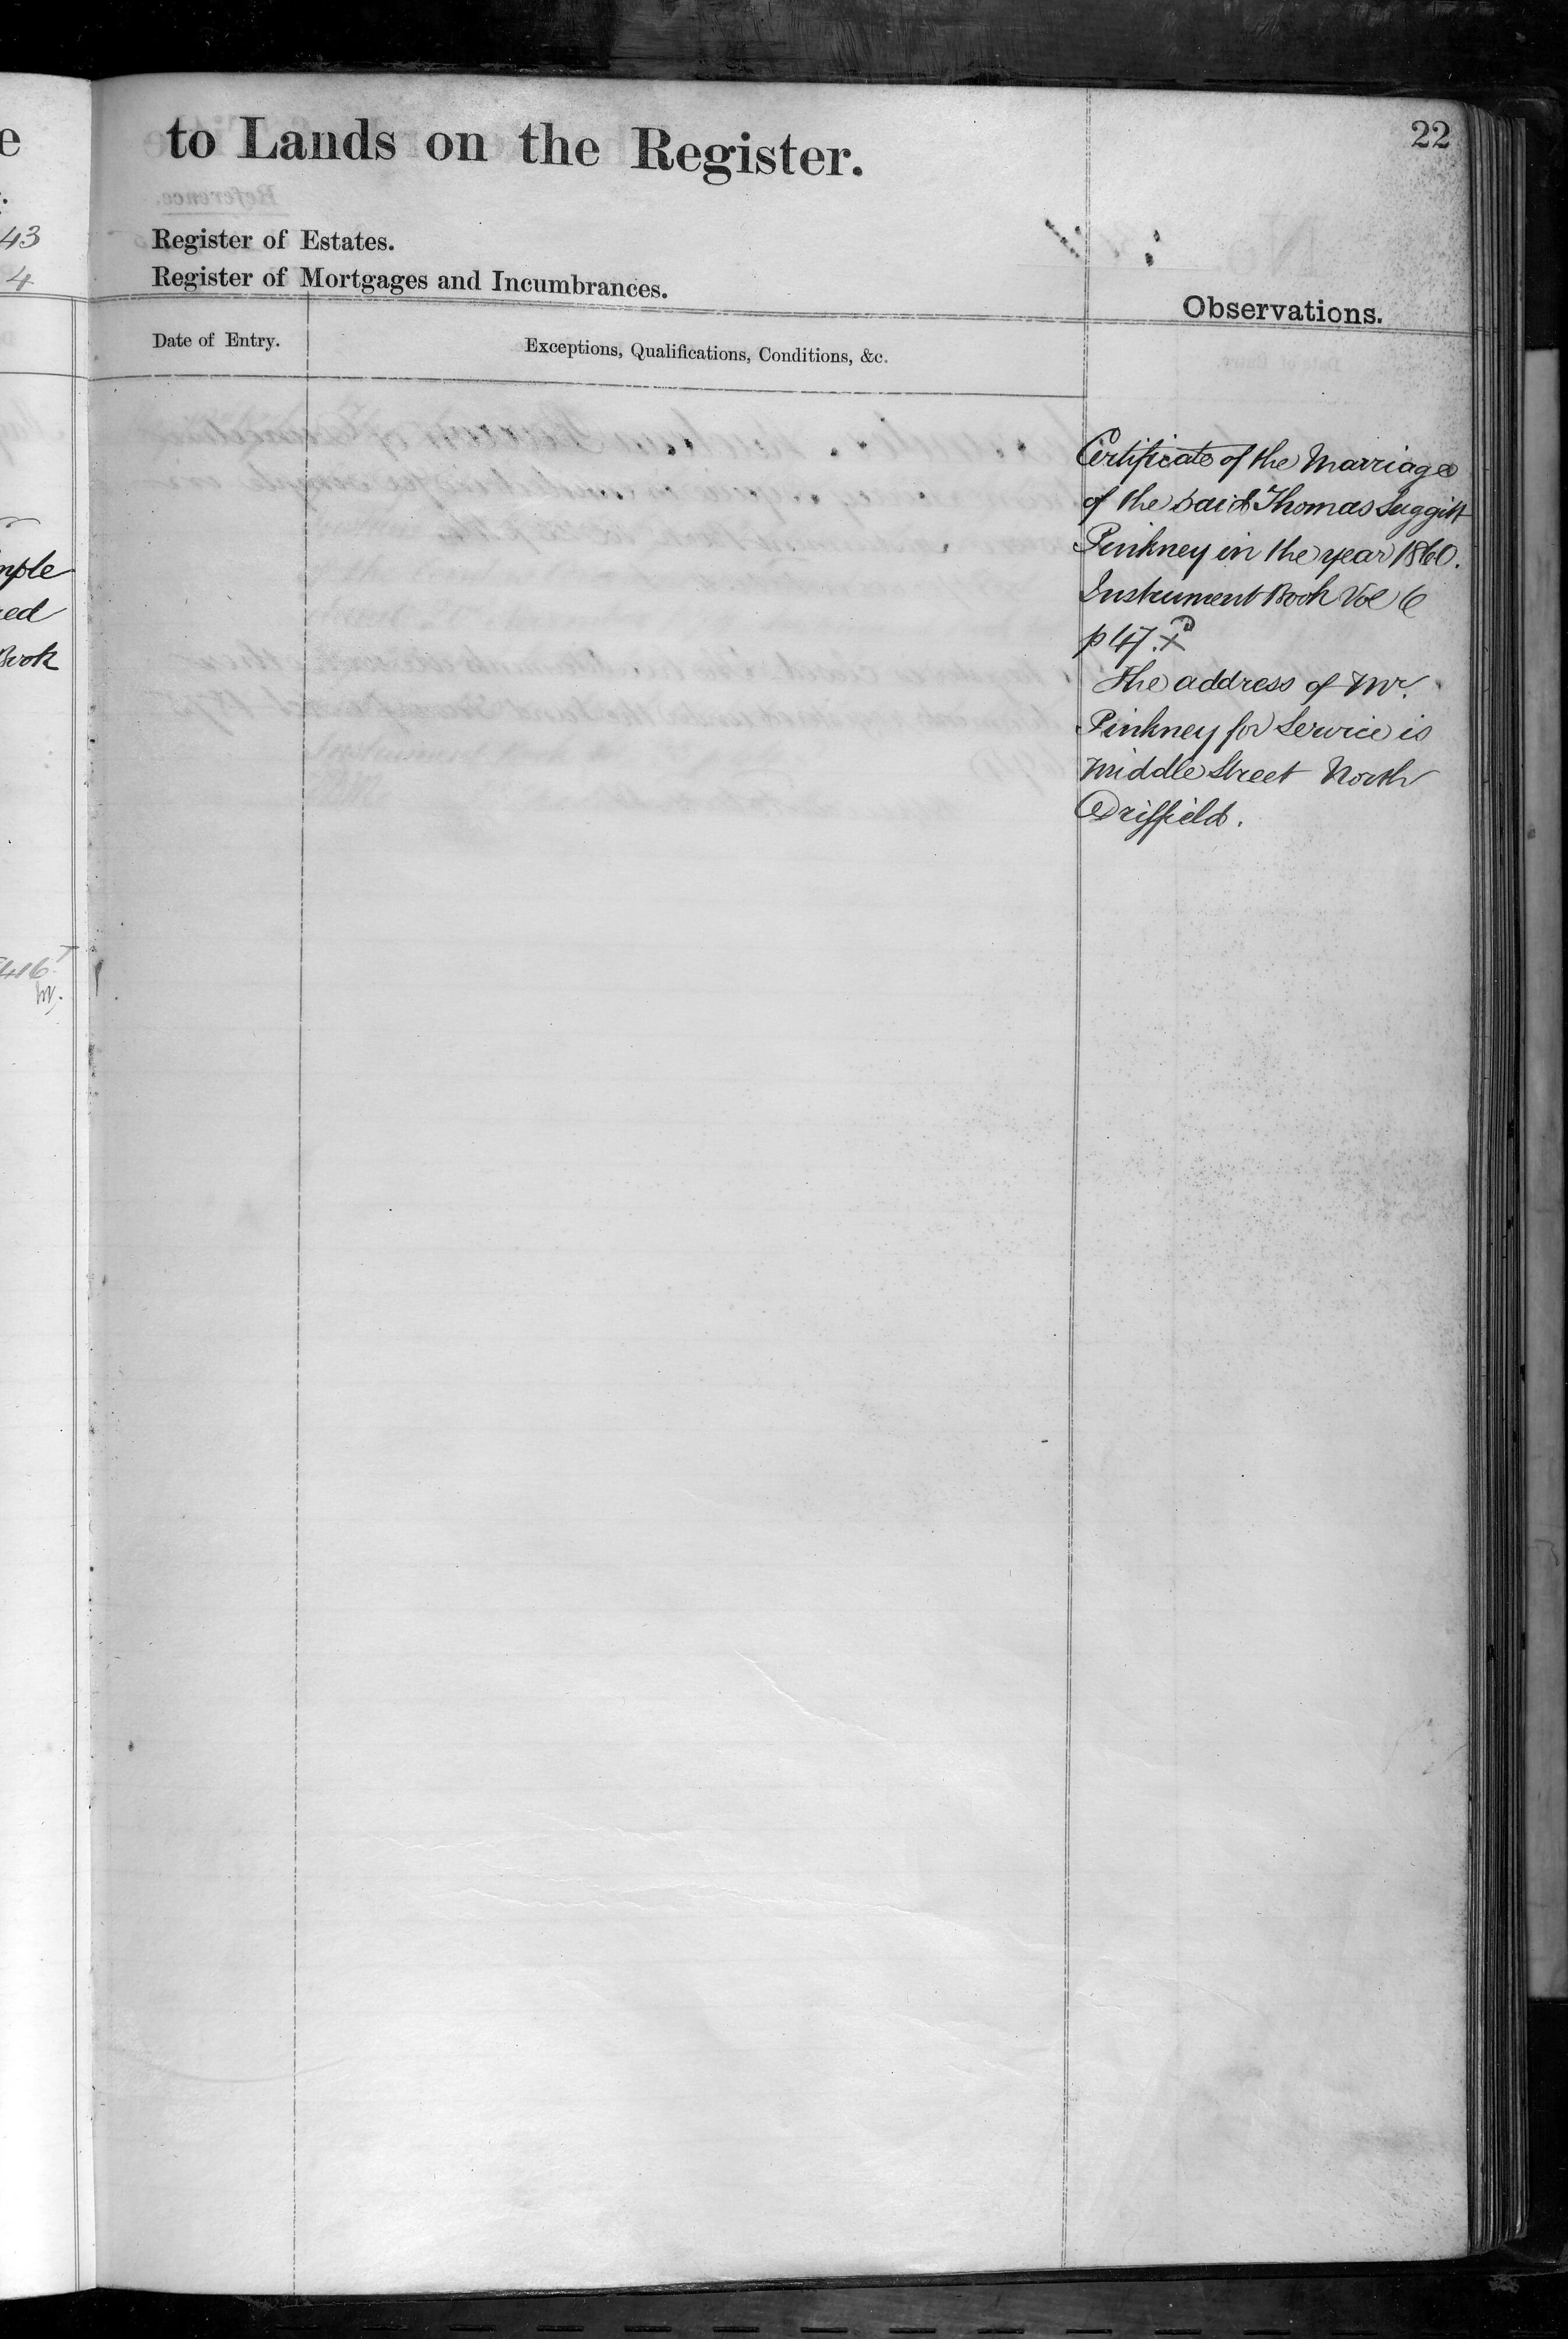 e
43
4
mple
ed
Book
to Lands on the Register.
22
Register of Estates.
Register of Mortgages and Incumbrances.
Observations.
Date of Entry.
Exceptions, Qualifications, Conditions, &c.
Certificate of the Marriage
of the said Thomas Suggitt
Pinkney in the year 1860.
Instrument Book Vol 6
p 47.
The address of Mr.
Pinkney for Service is
Middle Street North
Driffield.